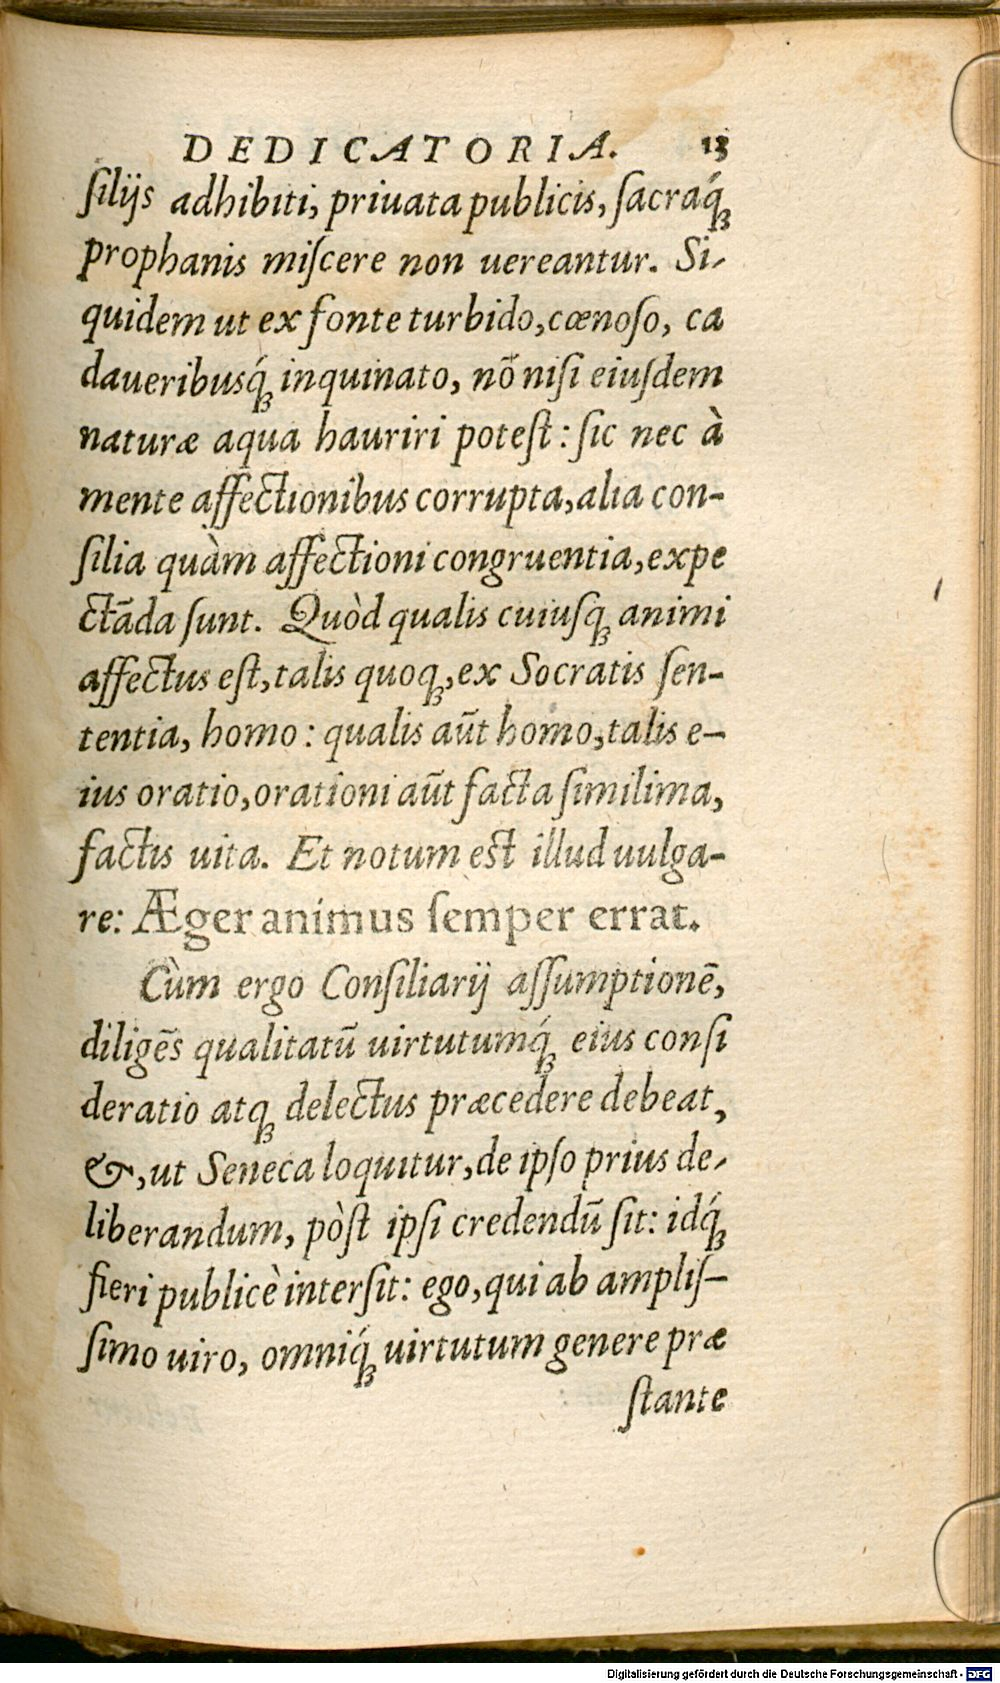 DEDICATORIA. 13
ſilijs adhibiti, priuata publicis, ſacraq́ꝫ
prophanis miſcere non uereantur. Si-
quidem ut ex fonte turbido, cœnoſo, ca
daueribusq́ꝫ inquinato, nõ niſi eiuſdem
naturæ aqua hauriri poteſt: ſic nec à
mente affectionibus corrupta, alia con-
ſilia quàm affectioni congruentia, expe
ctãda ſunt. Quòd qualis cuiuſqꝫ animi
affectus eſt, talis quoqꝫ, ex Socratis ſen-
tentia, homo: qualis aũt homo, talis e-
ius oratio, orationi aũt facta ſimilima,
factis uita. Et notum eſt illud uulga-
re: Æger animus ſemper errat.
Cùm ergo Conſiliarij aſſumptionẽ,
diligẽs qualitatũ uirtutumq́ꝫ eius conſi
deratio atqꝫ delectus præcedere debeat,
&, ut Seneca loquitur, de ipſo prius de-
liberandum, pòſt ipſi credendũ ſit: idq́ꝫ
fieri publicè interſit: ego, qui ab ampliſ-
ſimo uiro, omniq́ꝫ uirtutum genere præ
ſtante
Digitalisierung gefördert durch die Deutsche Forschungsgemeinschaft - DFG